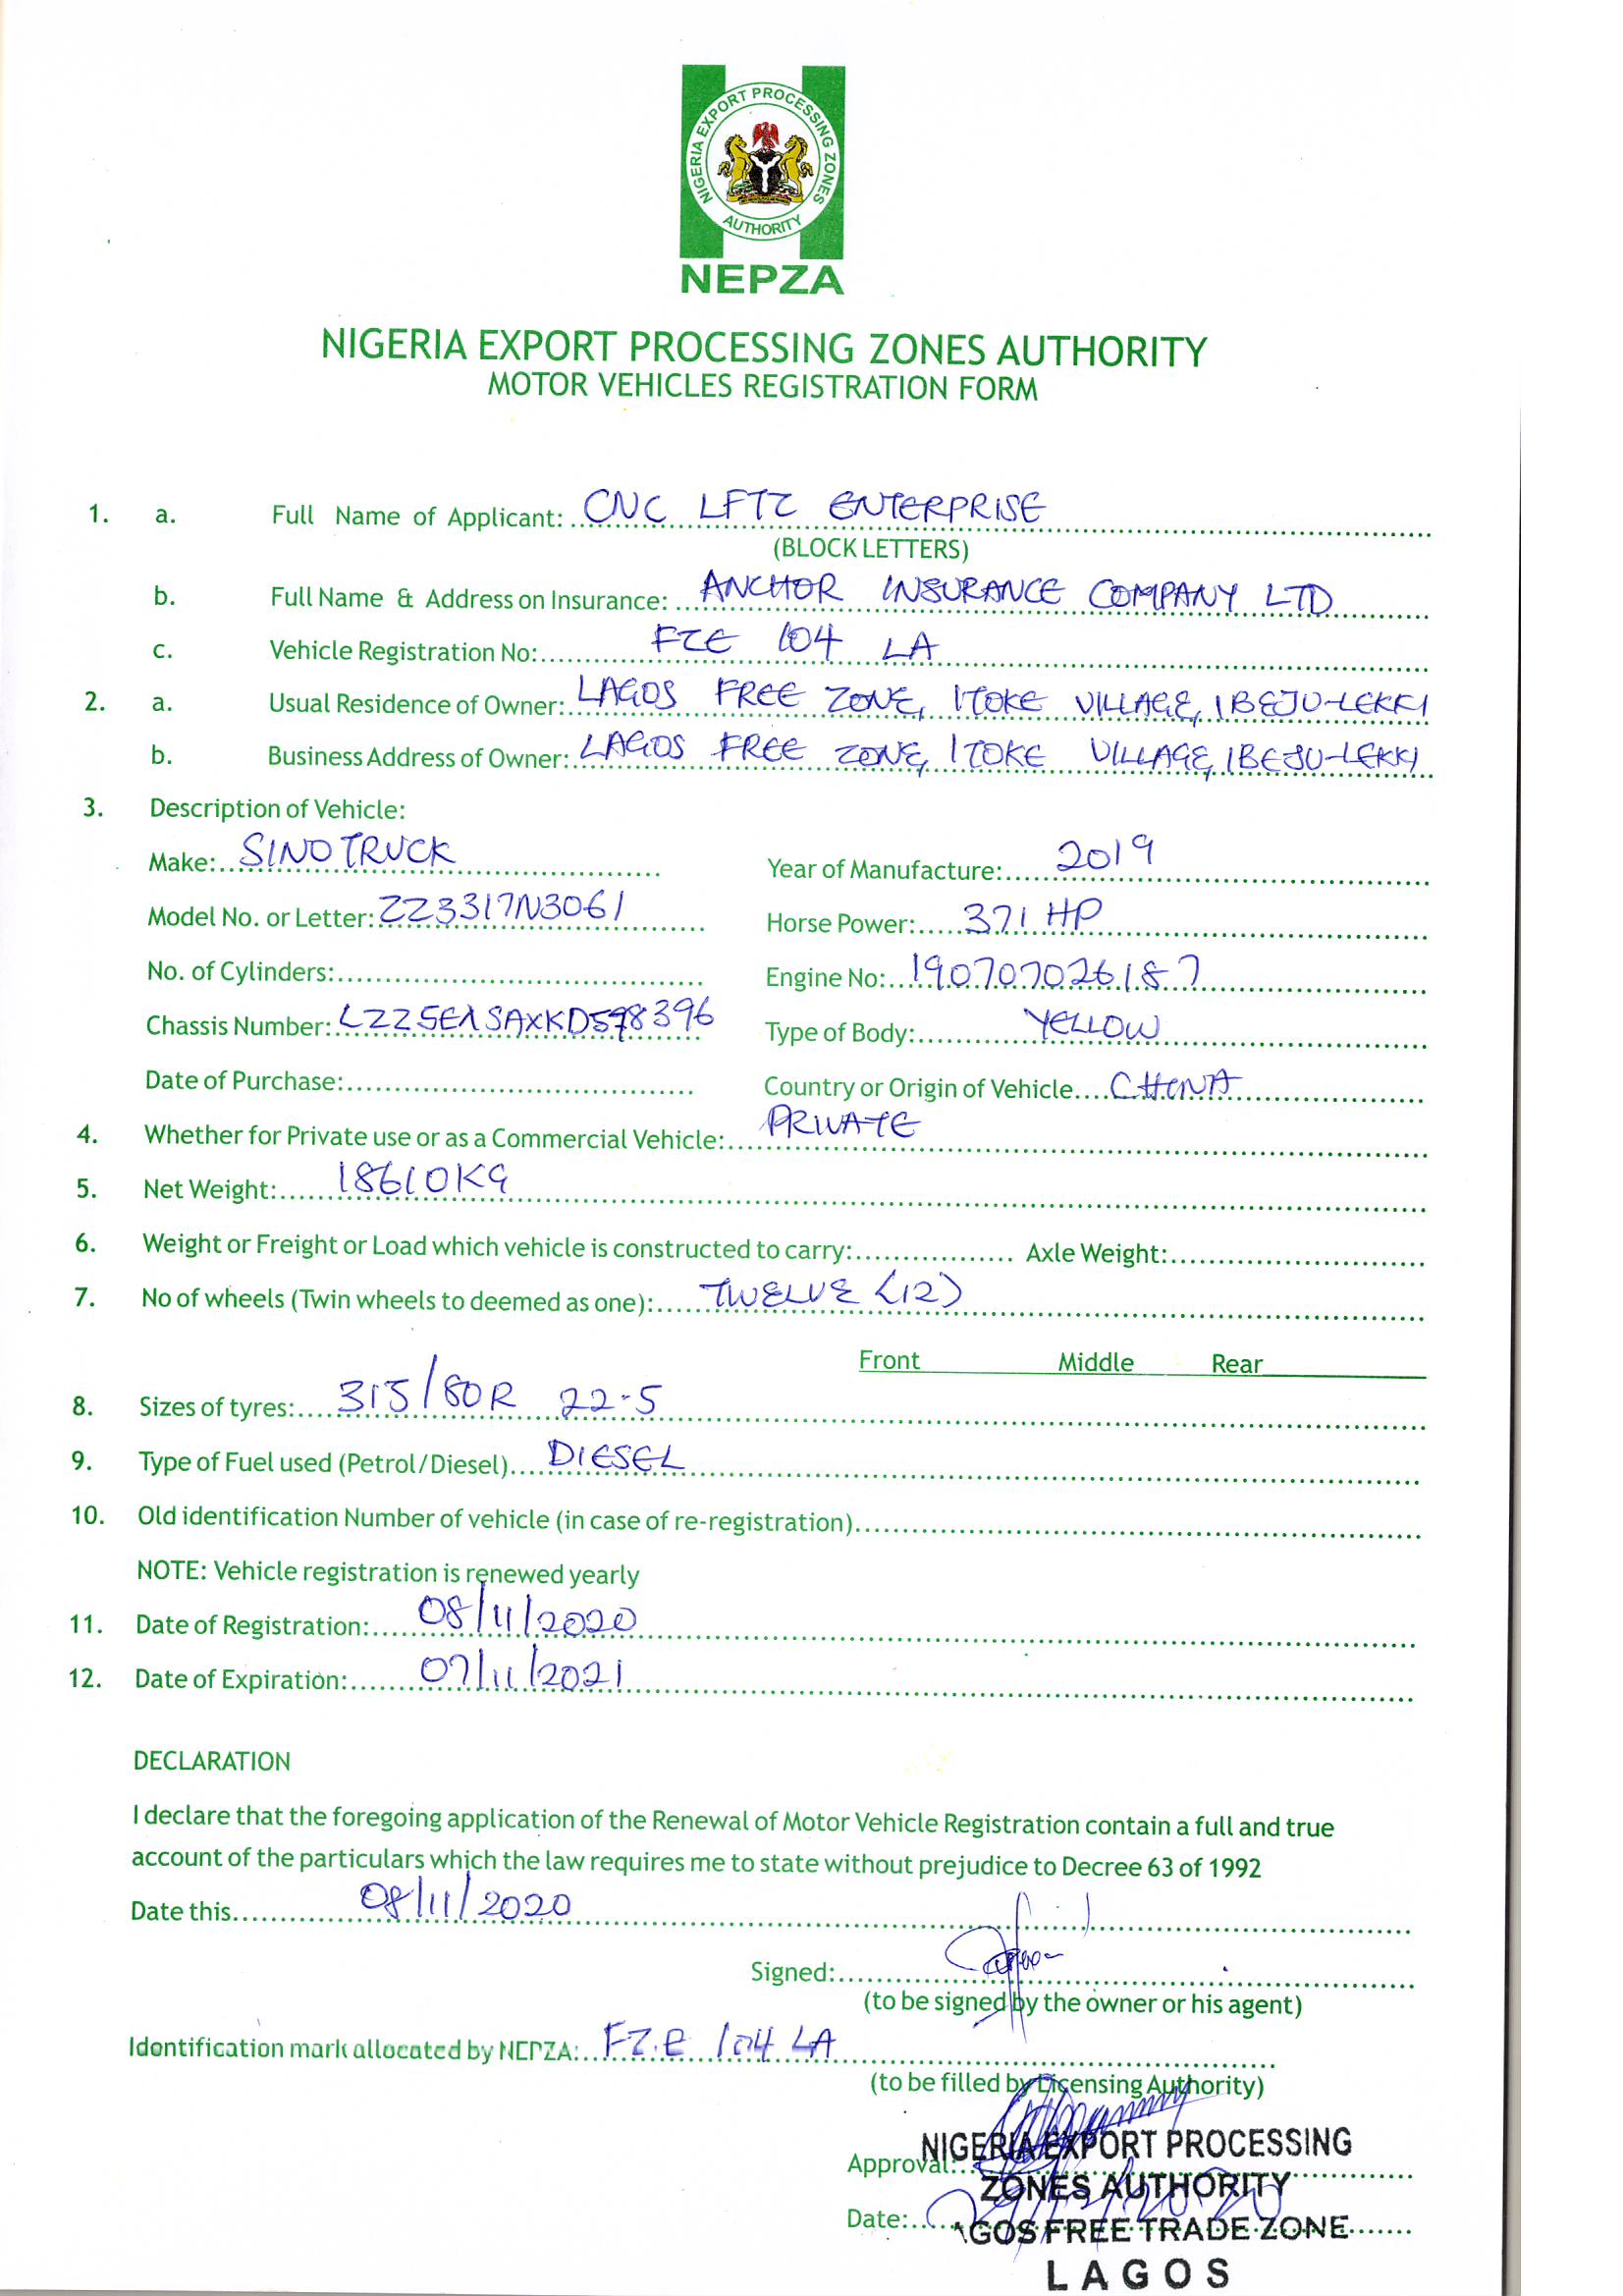 NIGERIA EXPORT PROCESSING ZONES
AUTHORITY
NEPZA
NIGERIA EXPORT PROCESSING ZONES AUTHORITY
MOTOR VEHICLES REGISTRATION FORM
1. a. Full Name of Applicant: CNC LFTZ ENTERPRISE
(BLOCK LETTERS)
b. Full Name & Address on Insurance: ANCHOR INSURANCE COMPANY LTD
c. Vehicle Registration No: FZE 104 LA
2. a. Usual Residence of Owner: LAGOS FREE ZONE, ITOKE VILLAGE, IBEJU-LEKKI
b. Business Address of Owner: LAGOS FREE ZONE, ITOKE VILLAGE, IBEJU-LEKKI
3. Description of Vehicle:
Make: SINOTRUCK Year of Manufacture: 2019
Model No. or Letter: ZZ3317N3061 Horse Power: 371 HP
No. of Cylinders: Engine No: 190707026187
Chassis Number: Type of Body: YELLOW
Date of Purchase: Country or Origin of Vehicle CHINA
4. Whether for Private use or as a Commercial Vehicle: PRIVATE
5. Net Weight: 18610KG
6. Weight or Freight or Load which vehicle is constructed to carry: Axle Weight:
7. No of wheels (Twin wheels to deemed as one): TWELVE (12)
Front Middle Rear
8. Sizes of tyres: 315/80R 22.5
9. Type of Fuel used (Petrol/Diesel) DIESEL
10. Old identification Number of vehicle (in case of re-registration)
NOTE: Vehicle registration is renewed yearly
11. Date of Registration: 08/11/2020
12. Date of Expiration: 07/11/2021
DECLARATION
I declare that the foregoing application of the Renewal of Motor Vehicle Registration contain a full and true
account of the particulars which the law requires me to state without prejudice to Decree 63 of 1992
Date this 08/11/2020
Signed:
(to be signed by the owner or his agent)
Identification mark allocated by NEPZA: FZE 104 LA
(to be filled by Licensing Authority)
NIGERIA EXPORT PROCESSING
Approval:
ZONES AUTHORITY
Date:
AGOS FREE TRADE ZONE
LAGOS